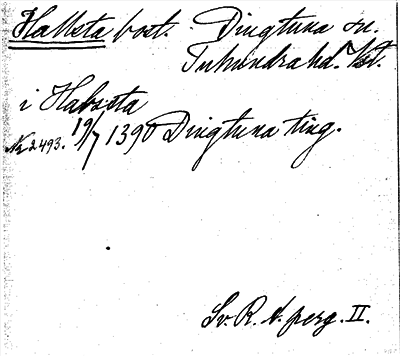 Hallsta bost. Dingtuna sn.
Tuhundra hd. Vst.
i Habasta
No 2493. 19/7 1390 Dingtuna ting.
Sv. R. A. perg. II.